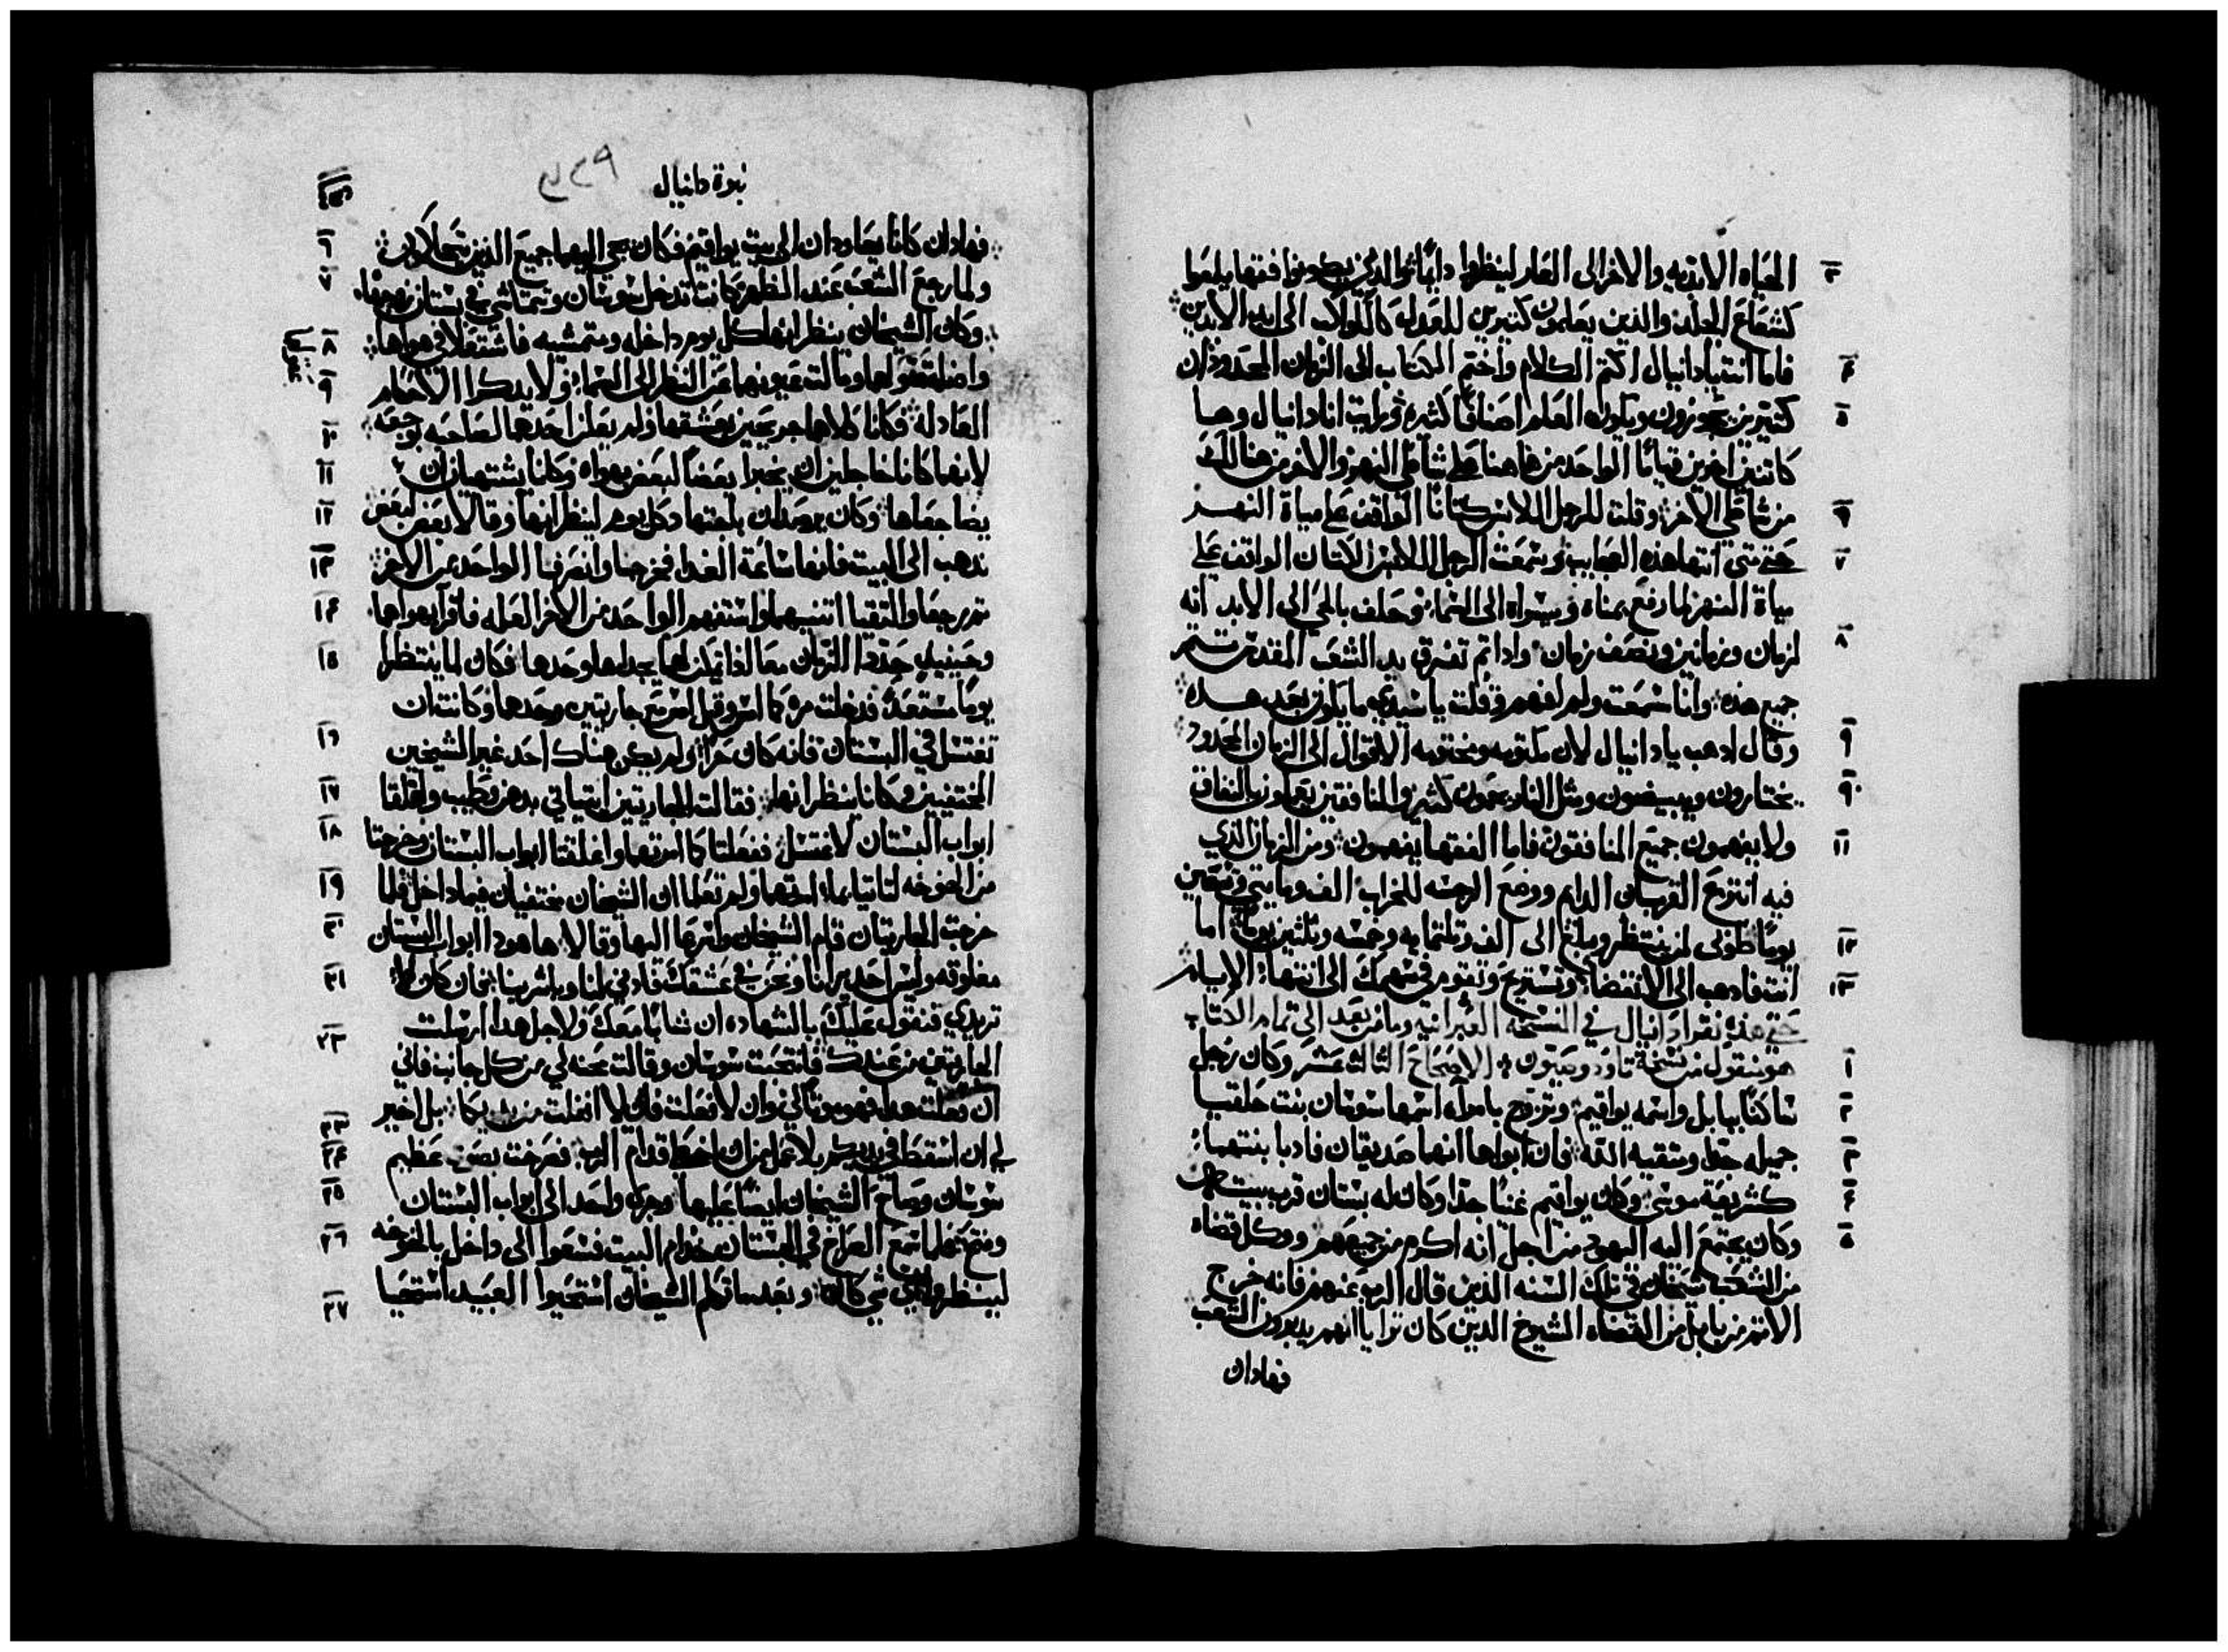 الحياه الابديه والاخر الى العار لينظروا دايمًا والدين يكونوا فقها يلمعوا
٣
كشعاع الجلد والذين يعلمون كثيرين للعدل كالكواكب الى ابد الابدين
فاما انت يا دانيال اكتم الكلام واختم الكتاب الى الزمان المحدود فان
٤
كثيرين يجوزون ويكون العلم اصنافًا كثيره ورايت انا دانيال وها
٥
كاثنين اخرين قيامًا الواحد من هاهنا على شاطى النهر والاخر من هنالك
من شاطى الاخر وقلت للرجل اللابس كتانًا الواقف على مياة النهر
٦
حتى متى انتها هذه العجايب وسمعت الرجل اللابس الكتان الواقف على
٧
مياة النهر لما رفع يمناه ويسراه الى السما وحلف بالحي الى الابد انه
لزمان وزمانين ونصف زمان وادا تم تفرق يد الشعب المقدس ستتم
٨
جميع هذه وانا سمعت ولم افهم وقلت يا سيدي ما يكون بعد هده
وقال ادهب يا دانيال لان مكتومه ومختومه الاقوال الى الزمان المحدود
٩
يختارون ويبيضون ومثل النار يحمون كثير والمنافقين يعملون بالنفاق
١٠
ولا يفهمون جميع المنافقون فاما الفقها يفهمون ومن الزمان الذي
١١
فيه انتزع القربان الدايم ووضع الرجسه للخراب الف ومايتي وتسعين
يومًا طوبى لمن ينتظر ويبلغ الى الف وتلتمايه وخمسه وتلتين يومًا اما
١٢
انت فادهب الى الانقضا وتستريح وتقوم في سهمك الى انتها الايام
١٣
حتى هذه نقرا دانيال في النسخه العبرانيه وما من بعد الى تمام الكتاب
هو منقول من نسخة تاودوصيون الاصحاح الثالث عشر وكان رجل
١
ساكنًا ببابل واسمه يواقيم وتزوج بامراه اسمها سوسان بنت حلقيا
٢
جميله جدًا ومتقيه الله فان ابواها انهما صديقان فادبا بنتهما
٣
كشريعة موسى وكان يواقيم غنيًا جدًا وكان له بستان قرب بيته
٤
وكان يجتمع اليه اليهود من اجل انه اكرم من جميعهم ووكل قضاه
٥
من الشعب شيخان في تلك السنه الذين قال الرب عنهم فانه خرج
الاثم من بابل من القضاه الشيوخ الدين كان ترايا انهم يدبرون الشعب
فهادان
نبوة دانيال
فهادان كانا يعاودان الى بيت يواقيم فكان يجي اليهما جميع الذين
٦
ولما رجع الشعب عند الظهر كانت تدخل سوسان وتتماشى في بستان زوجها
٧
وكان الشيخان ينظرانها كل يوم داخله ومتمشيه فاشتعلا في هواها
٨
واضلت عقولهما ومالت عيونهما عن النظر الى السما ولا يدكرا الاحكام
٩
العادله فكانا كلاهما جريحين بعشقها ولم يعلن احدهما لصاحبه بوجعه
١٠
لانهما كانا خاجلين ان يخبرا بعضًا لبعض بهواه وكانا يشتهيان ان
١١
يضاجعاها وكان يرصدان باجتهاد كل يوم لينظرانها وقالا بعض لبعض
١٢
ندهب الى البيت فانها ساعة الغدا فخرجا وانصرفا الواحد عن الاخر
١٣
ثم رجعا والتقيا اثنيهما واستفهم الواحد من الاخر العله فاقرا بهواهما
١٤
وحينيذ حددا الزمان معًا اذا يمكن لهما يجداها وحدها فكان لما ينتظرا
١٥
يومًا مستعدًا فدخلت مره كما امس وقبل امس مع جاريتين وحدهما وكانت ان
تغتسل في البستان فانه كان حرًا ولم يكن هناك احد غير الشيخين
١٦
المختفيين وكانا ينظرانها فقالت للجاريتين ايتياني بدهن وطيب واغلقا
١٧
ابواب البستان لاغتسل ففعلتا كما امرتهما واغلقتا ابواب البستان وخرجتا
١٨
من الخوخه لتاتيا بما امرتهما ولم تعلما ان الشيخان مختفيان فيما داخل فلما
١٩
خرجت الجاريتان قام الشيخان واسرعا اليها وقالا ها هودا ابواب البستان
٢٠
مغلوقه وليس احد يرانا ونحن في عشقك فادني لنا وباشرينا فان كان لا
٢١
تريدي فنقول عليك بالشهاده ان شابًا معك ولاجل هدا ارسلت
الجاريتين من عندك فانتحبت سوسان وقالت محنه لي من كل جانب فاني
٢٢
ان فعلت هدا فهو موتًا لي وان لا فعلت فلا انفلت من يديكما بل اخير
لي ان اسقط في يديكم بلا عمل من ان اخطى قدام الرب فصرخت بصوت عظيم
٢٣
٢٤
سوسان وصاح الشيخان ايضًا عليها وجرى واحد الى ابواب البستان
٢٥
وفتح فلما سمع الصراخ في البستان خدام البيت فسعوا الى داخل بالخوخه
٢٦
لينظروا اي شي كان وبعد ما تكلم الشيخان استحيوا العبيد استحيا
٢٧